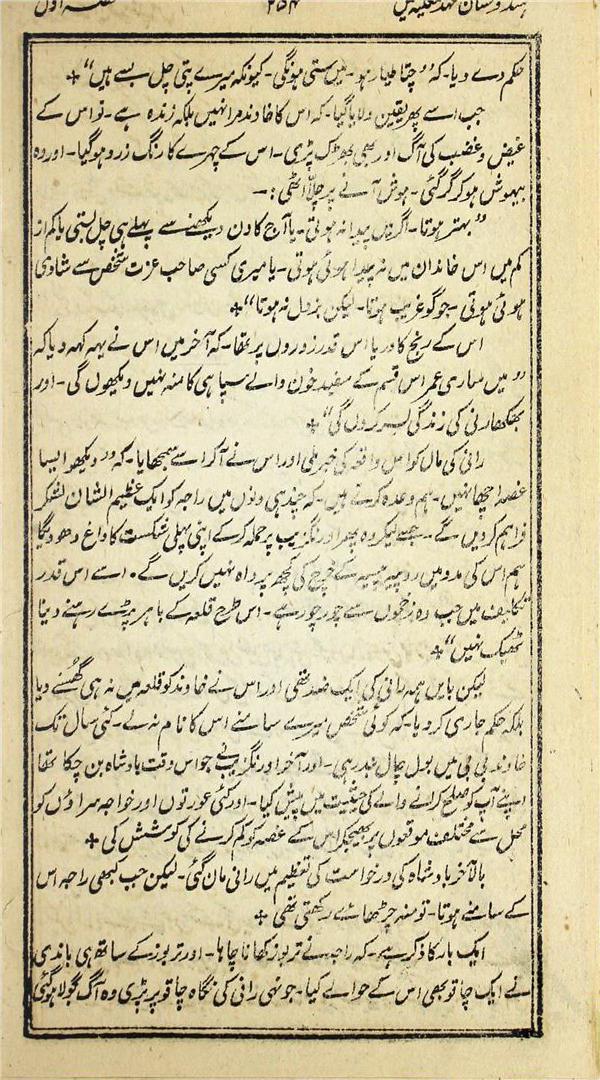 ہندوستان عہد مغلیہ میں ۲۵۴
حکم دے دیا۔ کہ ”چتا طیار ہو۔ میں ستی ہونگی۔ کیونکہ میرے پتی چل بسے ہیں“ ٭
جب اسے پھر یقین دلایا گیا۔ کہ اس کا خاوند مرا نہیں بلکہ زندہ ہے۔ تو اس کے
غیض و غضب کی آگ اور بھی بھڑک پڑی۔ اس کے چہرے کا رنگ زرد ہو گیا۔ اور وہ
بیہوش ہو کر گر گئی۔ ہوش آنے پر چلّا اٹھی :۔
”بہتر ہوتا۔ اگر میں پیدا نہ ہوتی۔ یا آج کا دن دیکھنے سے پہلے ہی چل بستی یا کم از
کم میں اس خاندان میں نہ پیدا ہوئی ہوتی۔ یا میری کسی صاحب عزت شخص سے شادی
ہوئی ہوتی۔ جو گو غریب ہوتا۔ لیکن بزدل نہ ہوتا“ ٭
اس کے رنج کا دریا اس قدر زوروں پر تھا۔ کہ آخر میں اس نے یہہ کہہ دیا کہ
”میں ساری عمر اس قسم کے سفید خون والے سپاہی کا منہ نہیں دیکھوں گی۔ اور
بھکھارنی کی زندگی بسر کروں گی“ ٭
رانی کی ماں کو اصل واقعہ کی خبر ملی اور اس نے آکر اسے سمجھایا۔ کہ ”دیکھو ایسا
غصہ اچھا نہیں۔ ہم وعدہ کرتے ہیں۔ کہ چند ہی دنوں میں راجہ کو ایک عظیم الشان لشکر
فراہم کر دیں گے۔ جسے لیکر وہ پھر اورنگزیب پر حملہ کر کے اپنی پہلی شکست کا داغ دھو دیگا
ہم اس کی مدد میں روپیہ پیسہ کے خرچ کی کچھ پرواہ نہیں کریں گے۔ اسے اس قدر
تکالیف میں جب وہ زخموں سے چور چور ہے۔ اس طرح قلعہ کے باہر پڑے رہنے دینا
ٹھیک نہیں“ ٭
لیکن بایں ہمہ رانی کی ایک ضد تھی اور اس نے خاوند کو قلعہ میں نہ ہی گھُسنے دیا
بلکہ حکم جاری کر دیا۔ کہ کوئی شخص میرے سامنے اس کا نام نہ لے۔ کئی سال تک
خاوند بی بی میں بول چال بند رہی۔ اور آخر اورنگزیب نے جو اس وقت بادشاہ بن چکا تھا
اپنے آپ کو صلح کرانے والے کی حیثیت میں پیش کیا۔ اور کئی عورتوں اور خواجہ سراؤں کو
محل سے مختلف موقعوں پر بھیجکر اس کے غصہ کو کم کرنے کی کوشش کی ٭
بالآخر بادشاہ کی درخواست کی تعظیم میں رانی مان گئی۔ لیکن جب کبھی راجہ اس
کے سامنے ہوتا۔ تو منہ چڑھائے رکھتی تھی ٭
ایک بار کا ذکر ہے۔ کہ راجہ نے تربوز کھانا چاہا۔ اور تربوز کے ساتھ ہی باندی
نے ایک چاقو بھی اس کے حوالے کیا۔ جونہی رانی کی نگاہ چاقو پر پڑی وہ آگ بگولا ہو گئی